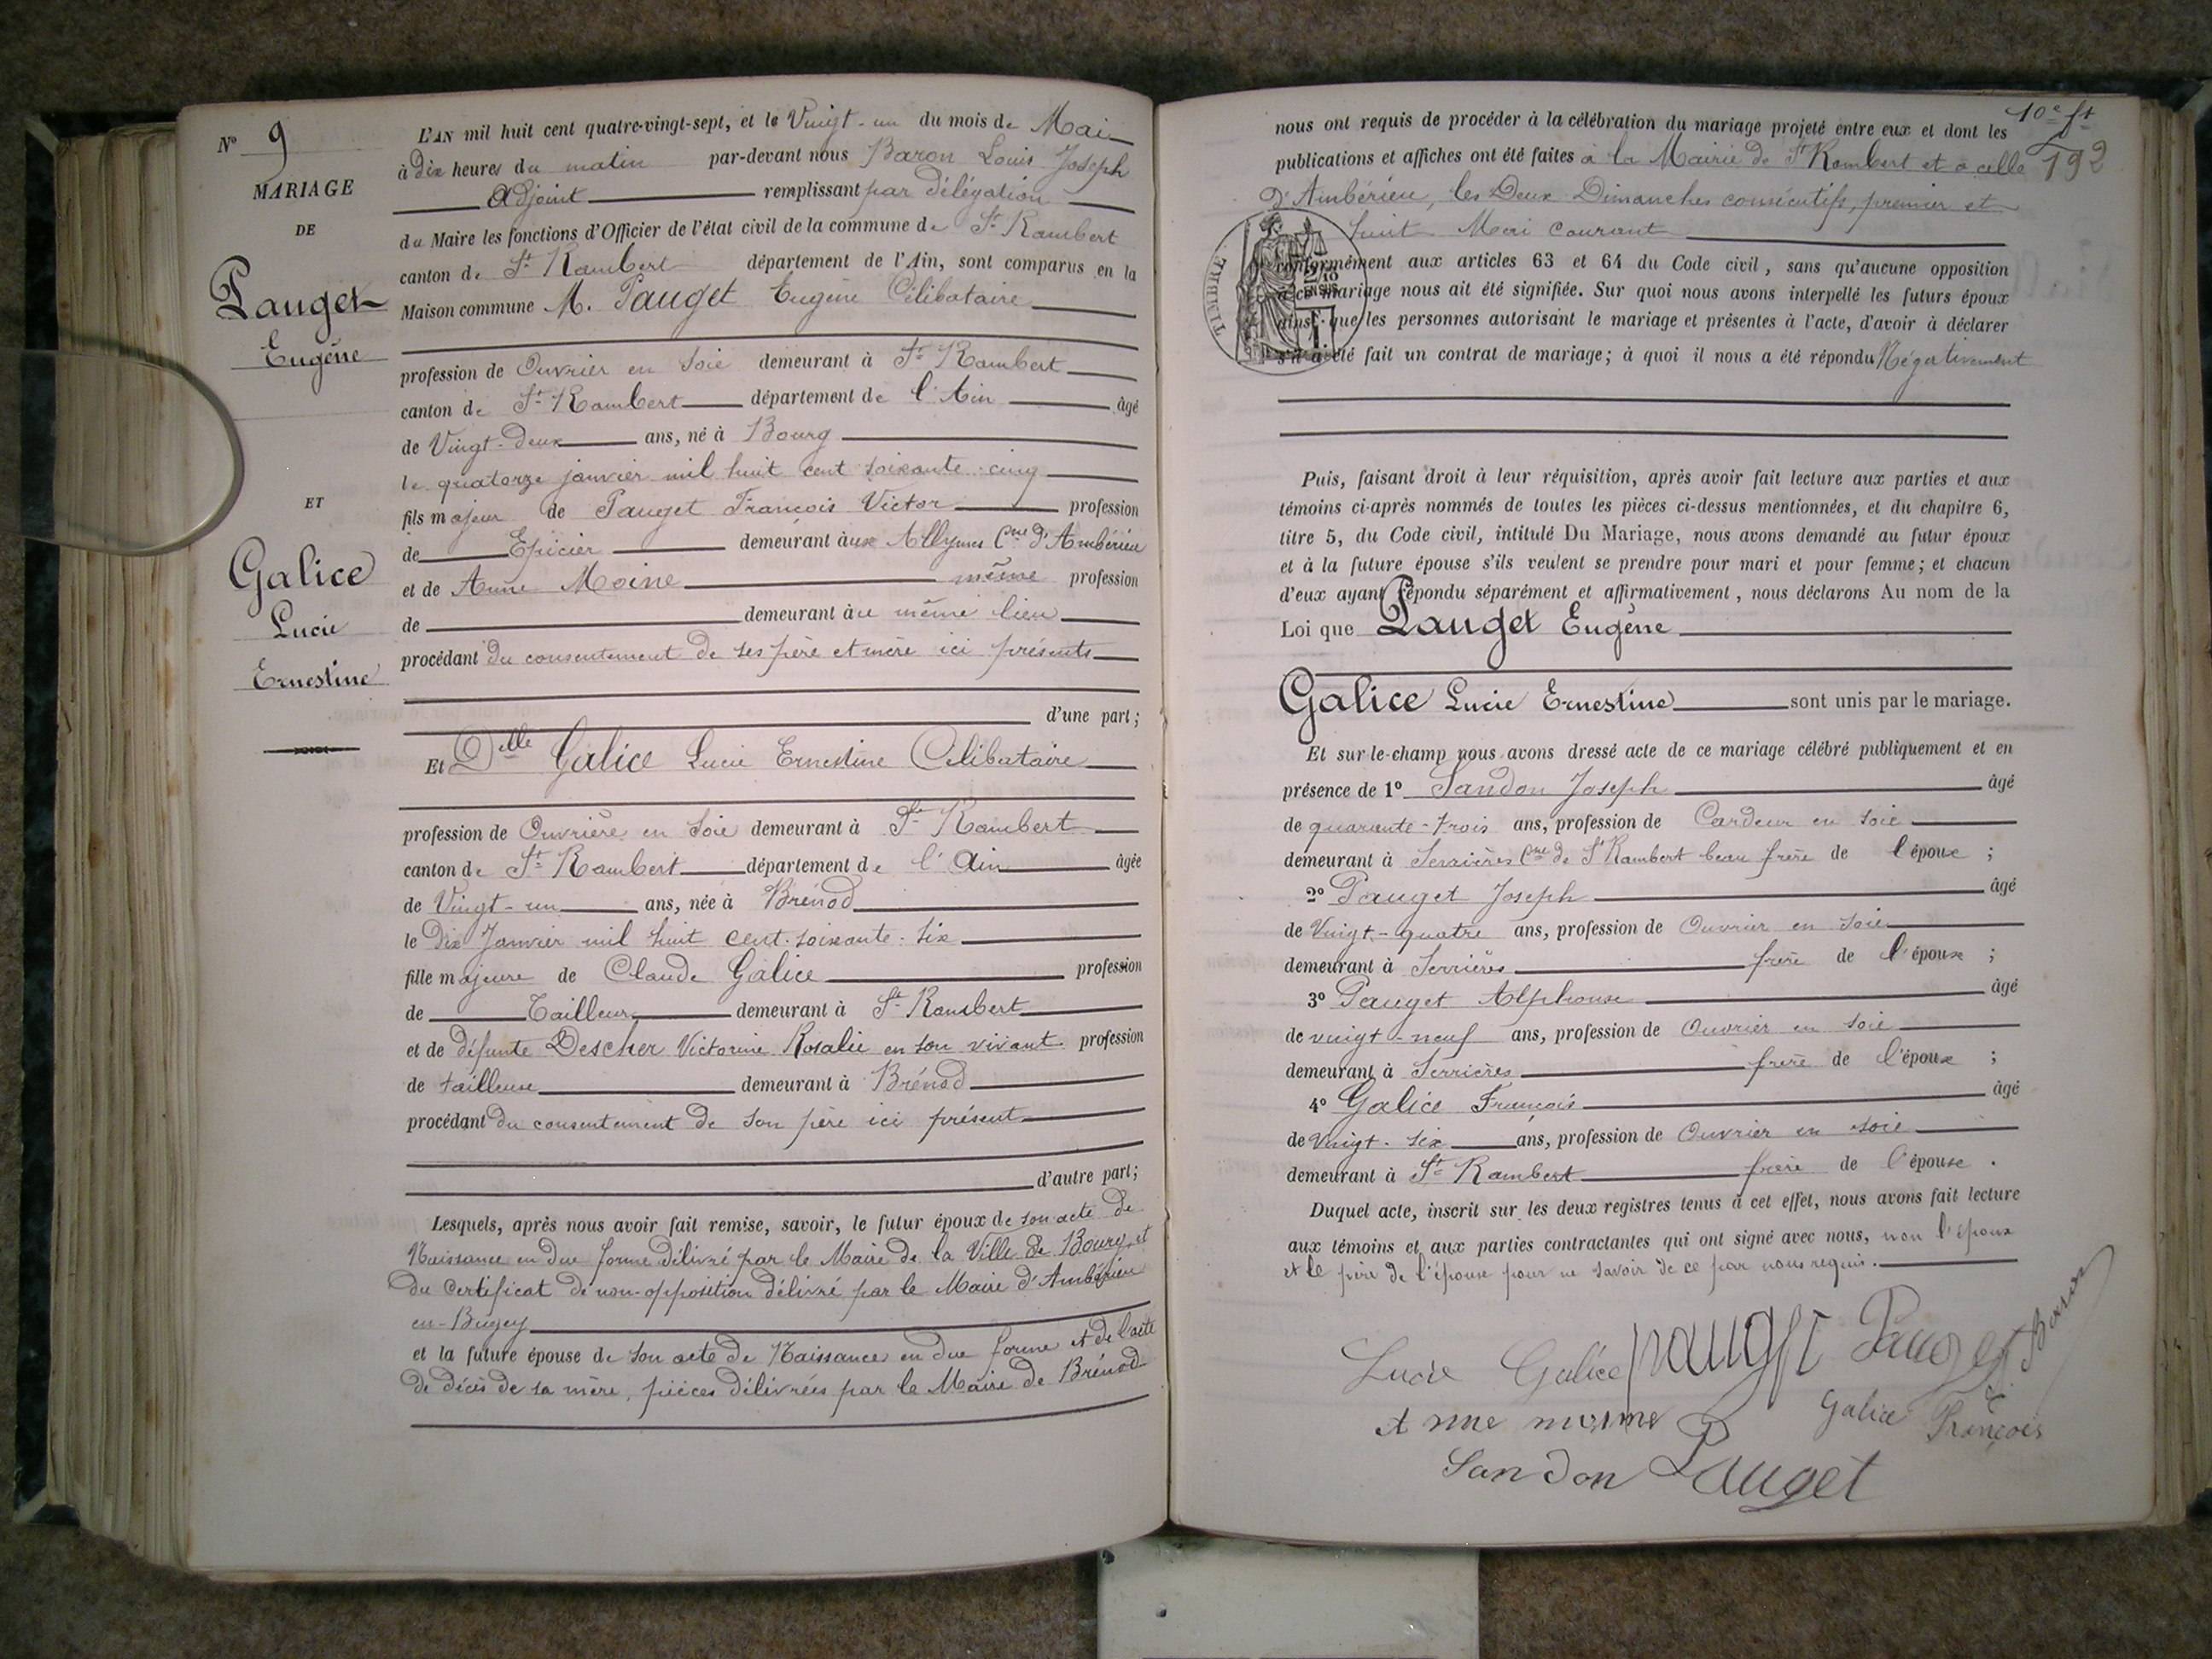 N° 9
MARIAGE
DE
Pauget
Eugène
ET
Galice
Lucie
Ernestine
L'AN mil huit cent quatre-vingt-sept, et le Vingt-un du mois de Mai
à Dix heures du matin par-devant nous Baron Louis Joseph
Adjoint remplissant par délégation
du Maire les fonctions d'Officier de l'état civil de la commune de St Rambert
canton de St Rambert département de l'Ain, sont comparus en la
Maison commune M. Pauget Eugène Célibataire
profession de Ouvrier en soie demeurant à St Rambert
canton de St Rambert département de l'Ain âgé
de Vingt-deux ans, né à Bourg
le quatorze janvier mil huit cent soixante-cinq
fils majeur de Pauget François Victor profession
de Epicier demeurant aux Allymes Cne d'Ambérieu
et de Anne Moine même profession
de demeurant au même lieu
procédant du consentement de ses père et mère ici présents
d'une part;
Et Delle Galice Lucie Ernestine Célibataire
profession de Ouvrière en soie demeurant à St Rambert
canton de St Rambert département de l'Ain âgée
de Vingt-un ans, née à Brénod
le Dix Janvier mil huit cent soixante-six
fille majeure de Claude Galice profession
de Tailleur demeurant à St Rambert
et de défunte Descher Victorine Rosalie en son vivant profession
de tailleuse demeurant à Brénod
procédant du consentement de son père ici présent
d'autre part;
Lesquels, après nous avoir fait remise, savoir, le futur époux de son acte de
Naissance en due forme délivré par le Maire de la Ville de Bourg et
du certificat de non-opposition délivré par le Maire d'Ambérieu
en-Bugey
et la future épouse de son acte de Naissance en due forme et de l'acte
de décès de sa mère, pièces délivrées par le Maire de Brénod
10e ft
192
nous ont requis de procéder à la célébration du mariage projeté entre eux et dont les
publications et affiches ont été faites à la Mairie de St Rambert et à celle
d'Ambérieu, les Deux Dimanches consécutifs, premier et
huit Mai courant
TIMBRE
conformément aux articles 63 et 64 du Code civil, sans qu'aucune opposition
à ce mariage nous ait été signifiée. Sur quoi nous avons interpellé les futurs époux
ainsi que les personnes autorisant le mariage et présentes à l'acte, d'avoir à déclarer
s'il a été fait un contrat de mariage; à quoi il nous a été répondu Négativement
Puis, faisant droit à leur réquisition, après avoir fait lecture aux parties et aux
témoins ci-après nommés de toutes les pièces ci-dessus mentionnées, et du chapitre 6,
titre 5, du Code civil, intitulé Du Mariage, nous avons demandé au futur époux
et à la future épouse s'ils veulent se prendre pour mari et pour femme; et chacun
d'eux ayant répondu séparément et affirmativement, nous déclarons Au nom de la
Loi que Pauget Eugène
Galice Lucie Ernestine sont unis par le mariage.
Et sur-le-champ nous avons dressé acte de ce mariage célébré publiquement et en
présence de 1° Sandon Joseph âgé
de quarante-trois ans, profession de Cardeur en soie
demeurant à Serrières Cne de St Rambert beau frère de l'époux ;
2° Pauget Joseph âgé
de Vingt-quatre ans, profession de Ouvrier en soie
demeurant à Serrières frère de l'époux ;
3° Pauget Alphonse âgé
de vingt-neuf ans, profession de Ouvrier en soie
demeurant à Serrières frère de l'époux ;
4° Galice François âgé
de Vingt-six ans, profession de Ouvrier en soie
demeurant à St Rambert frère de l'épouse.
Duquel acte, inscrit sur les deux registres tenus à cet effet, nous avons fait lecture
aux témoins et aux parties contractantes qui ont signé avec nous, non l'époux
et le père de l'épouse pour ne savoir de ce par nous requis.
Lucie Galice pauget Pauget Baron
Anne moine Galice François
Sandon Pauget